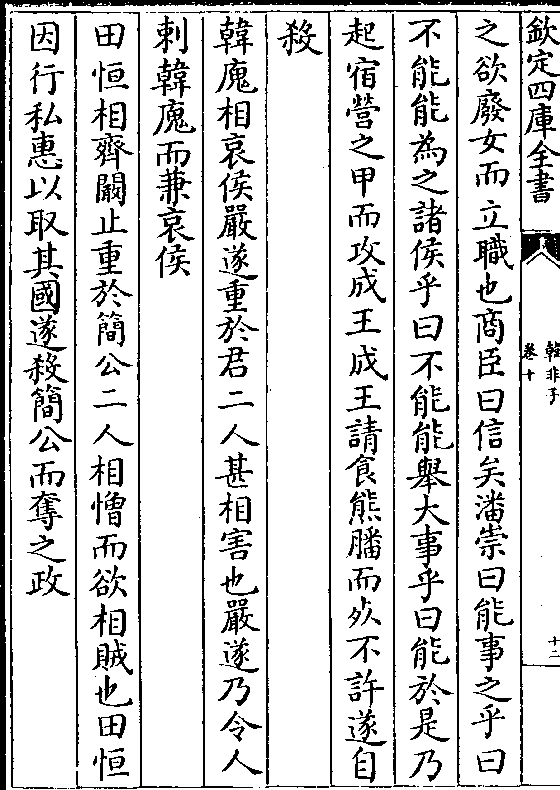 欽定四庫全書
韓非子
卷十
十二
之欲廢女而立職也商臣曰信矣潘崇曰能事之乎曰
不能能為之諸侯乎曰不能能舉大事乎曰能於是乃
起宿營之甲而攻成王成王請食熊膰而死不許遂自
殺
韓廆相哀侯嚴遂重於君二人甚相害也嚴遂乃令人
刺韓廆而兼哀侯
田恒相齊闞止重於簡公二人相憎而欲相賊也田恒
因行私惠以取其國遂殺簡公而奪之政